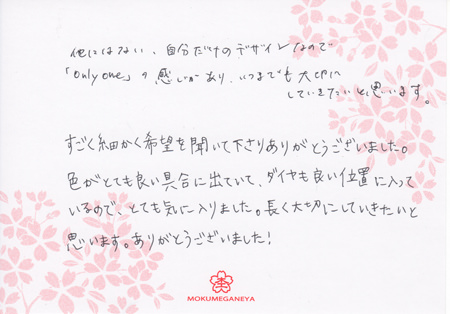 他にはない、自分だけのデザインなので
「only one」の感じがあり、いつまでも大切に
していきたいと思います。
すごく細かく希望を聞いて下さりありがとうございました。
色がとても良い具合に出ていて、ダイヤも良い位置に入って
いるので、とても気に入りました。長く大切にしていきたいと
思います。ありがとうございました!
MOKUMEGANEYA